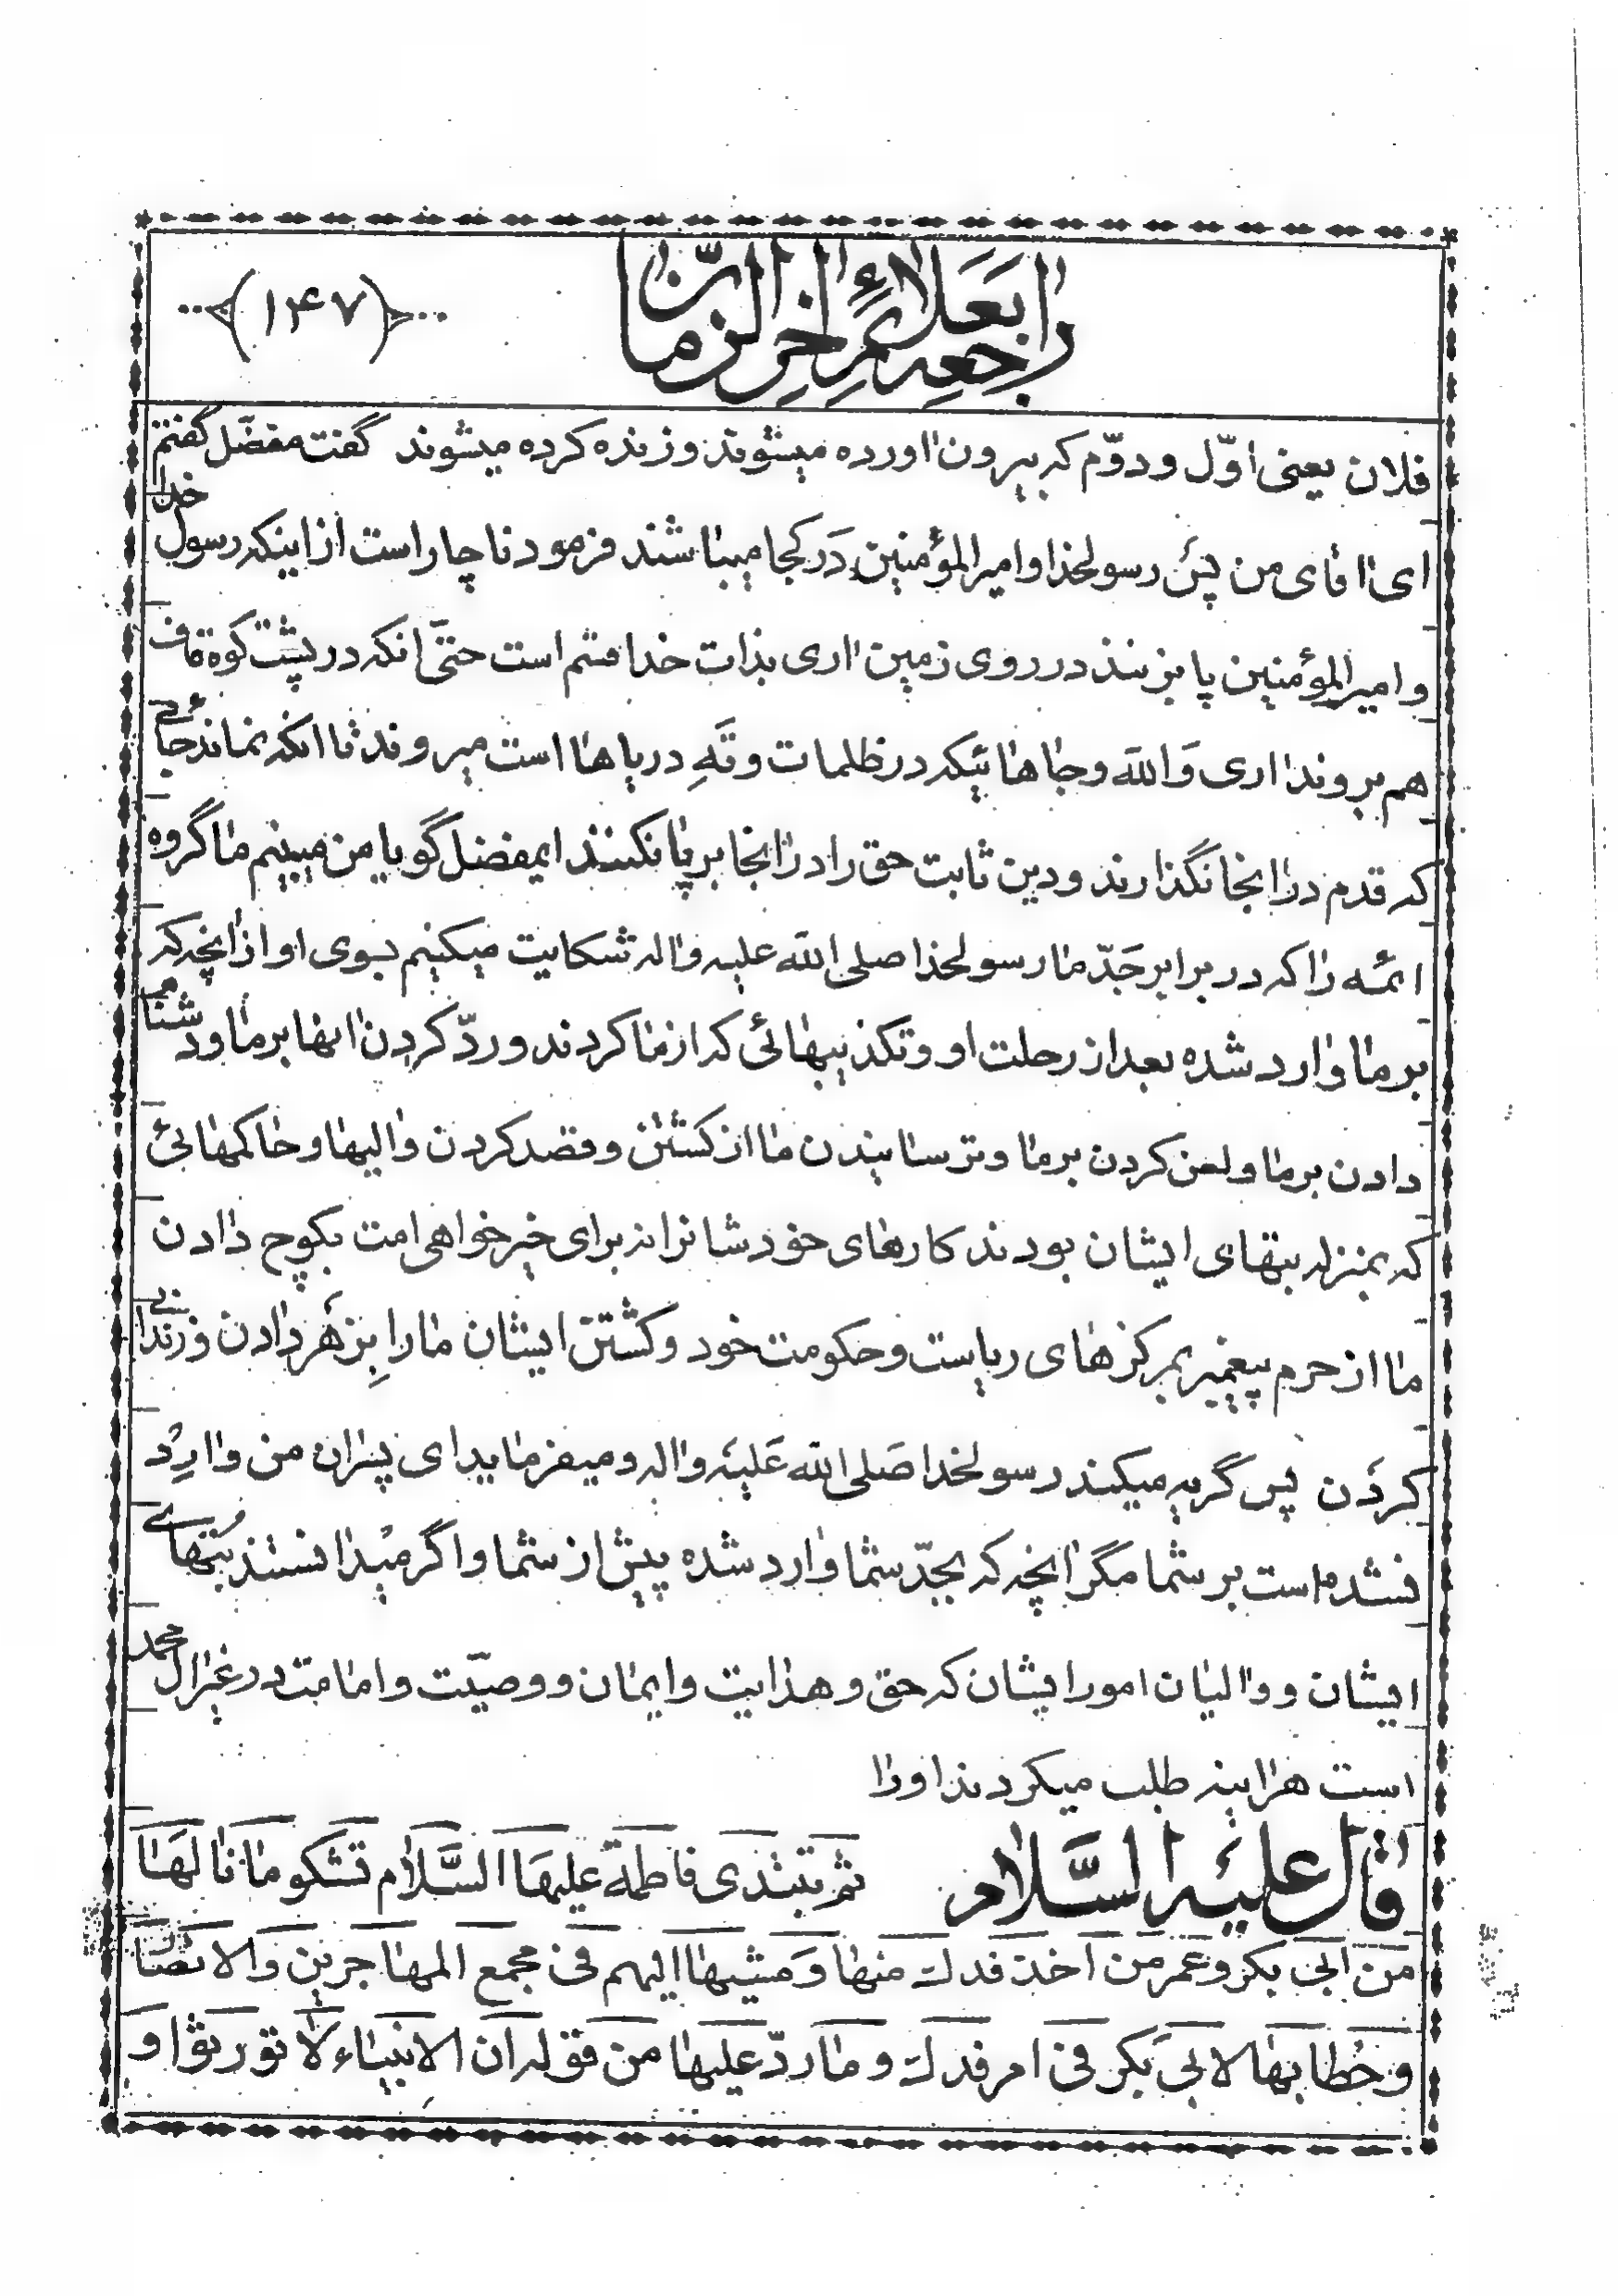 راجعه بعلائم اخر الزمان
(۱۴۷)
فلان یعنی اوّل و دوّم که بیرون اورده میشوند و زنده کرده میشوند گفت مفضّل گفتم
ای اقای من پس رسولخدا و امیرالمؤمنین در کجا میباشند فرمود ناچار است از اینکه رسول خدا
و امیرالمؤمنین پا بزنند در روی زمین اری بذات خدا قسم است حتّی انکه در پشت کوه قاف
هم بروند اری والله و جاهائیکه در ظلمات و تَهِ دریاها است میروند تا انکه نماند جائی
که قدم در انجا نگذارند و دین ثابت حق را در انجا برپا نکنند ایمفضل گویا من میبینم ما گروه
ائمه را که در برابر جَدّ ما رسولخدا صلی الله علیه واله شکایت میکنیم بسوی او از انچه که
بر ما وارد شده بعد از رحلت او و تکذیبهائی که از ما کردند و ردّ کردن انها بر ما و دشنام
دادن بر ما و لعن کردن بر ما و ترسانیدن ما از کشتن و قصد کردن والیها و حاکمهائی
که بمنزله بتهای ایشان بودند کارهای خودشانرا نه برای خیرخواهی امت بکوچ دادن
ما از حرم پیغمبر بمرکزهای ریاست و حکومت خود و کشتن ایشان ما را بِزَهر دادن و زندانی
کردَن پس گریه میکند رسولخدا صَلی الله عَلیه واله و میفرماید ای پسران من وارِد
نشده است بر شما مگر انچه که بجدّ شما وارد شده پیش از شما و اگر میدانستند بُتهای
ایشان و والیان امور ایشان که حق و هدایت و ایمان و وصیّت و امامت در غیر ال محمد
است هراینه طلب میکردند او را
قال علیه السَّلام ثم تبتدی فاطمة علیهَا السَّلام تشکو ما نالهَا
من ابی بکر و عمر من اخذ فدك منها وَ مشیها الیهم فی مجمع المهاجرین وَ الانصار
و خطابها لابی بکر فی امر فدك و ما ردّ علیها من قوله ان الانبیاء لا تورثوا و